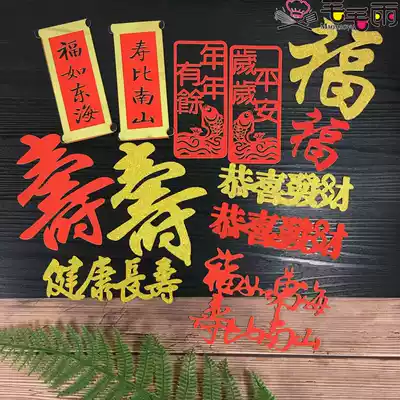 毛毛雨
福如东海
寿比南山
年年有餘
歲歲平安
福
福
壽
壽
恭喜發财
恭喜發财
健康長壽
福如東海
寿比南山